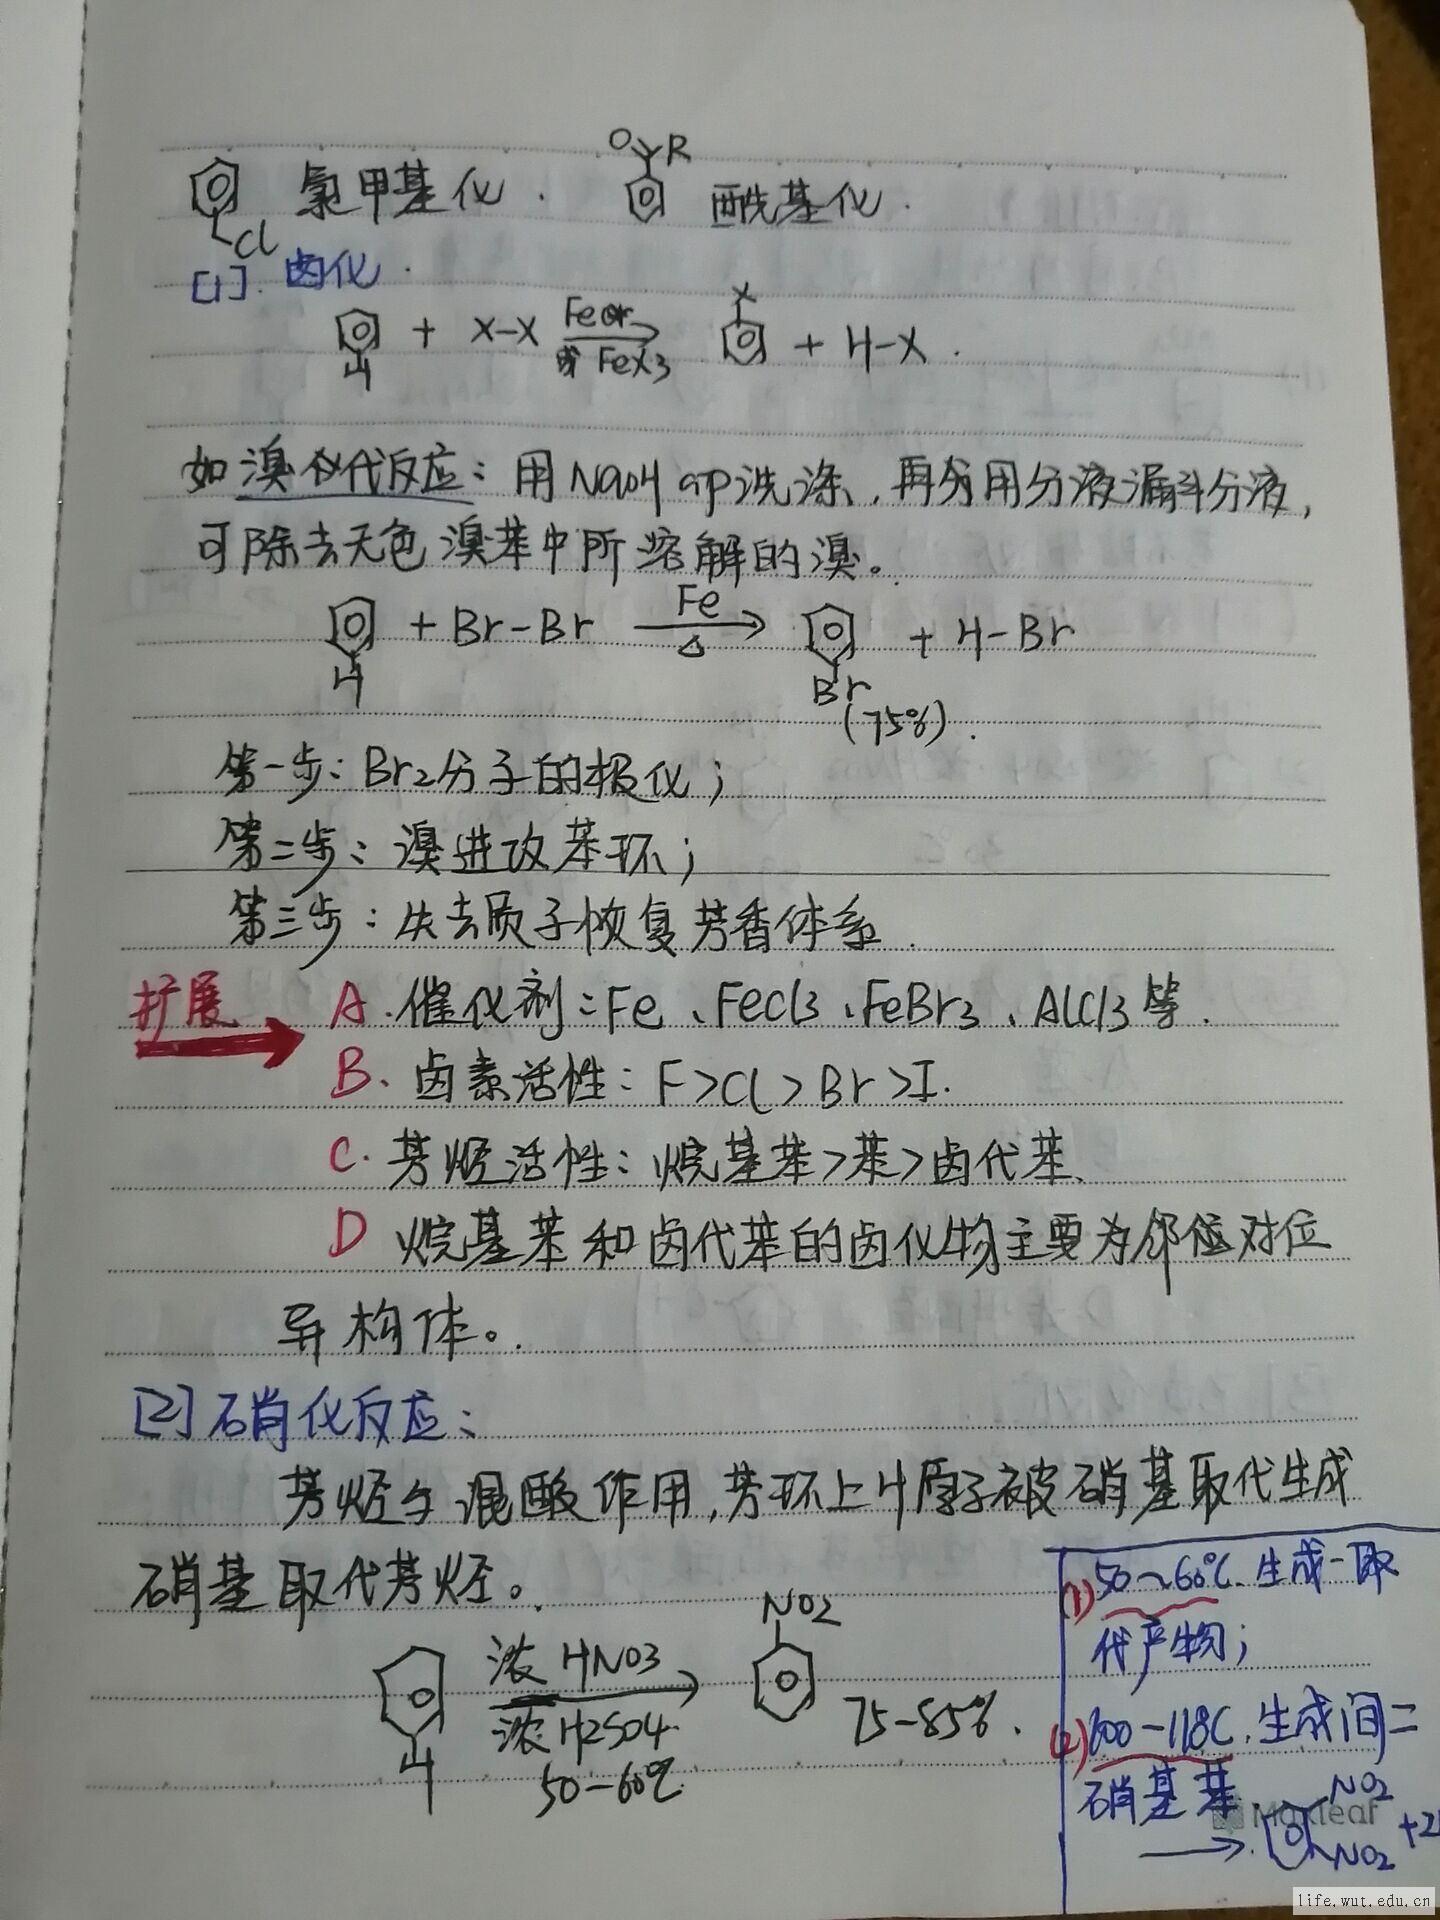 氯甲基化. O R 酰基化.
Cl
[1]. 卤化.
X
+ X-X Fe or 或 FeX3 + H-X.
H
如溴代反应: 用NaOH 洗涤, 再用分液漏斗分液,
可除去无色溴苯中所溶解的溴。
+ Br-Br Fe △ + H-Br
H Br
(75%).
第一步: Br2分子的极化;
第二步: 溴进攻苯环;
第三步: 失去质子恢复芳香体系.
扩展 A.催化剂: Fe、FeCl3、FeBr3、AlCl3等.
B. 卤素活性: F>Cl>Br>I.
C. 芳烃活性: 烷基苯>苯>卤代苯、
D 烷基苯和卤代苯的卤化物主要为邻位对位
异构体。
[2]硝化反应:
芳烃与混酸作用,芳环上H原子被硝基取代生成
硝基取代芳烃。
NO2
浓 HNO3
浓 H2SO4
50-60℃
H
75-85%.
(1) 50~60℃.生成一取
代产物;
(2) 100-118C.生成间二
硝基苯.
Maxleaf
NO2
NO2 +2
life.wut.edu.cn